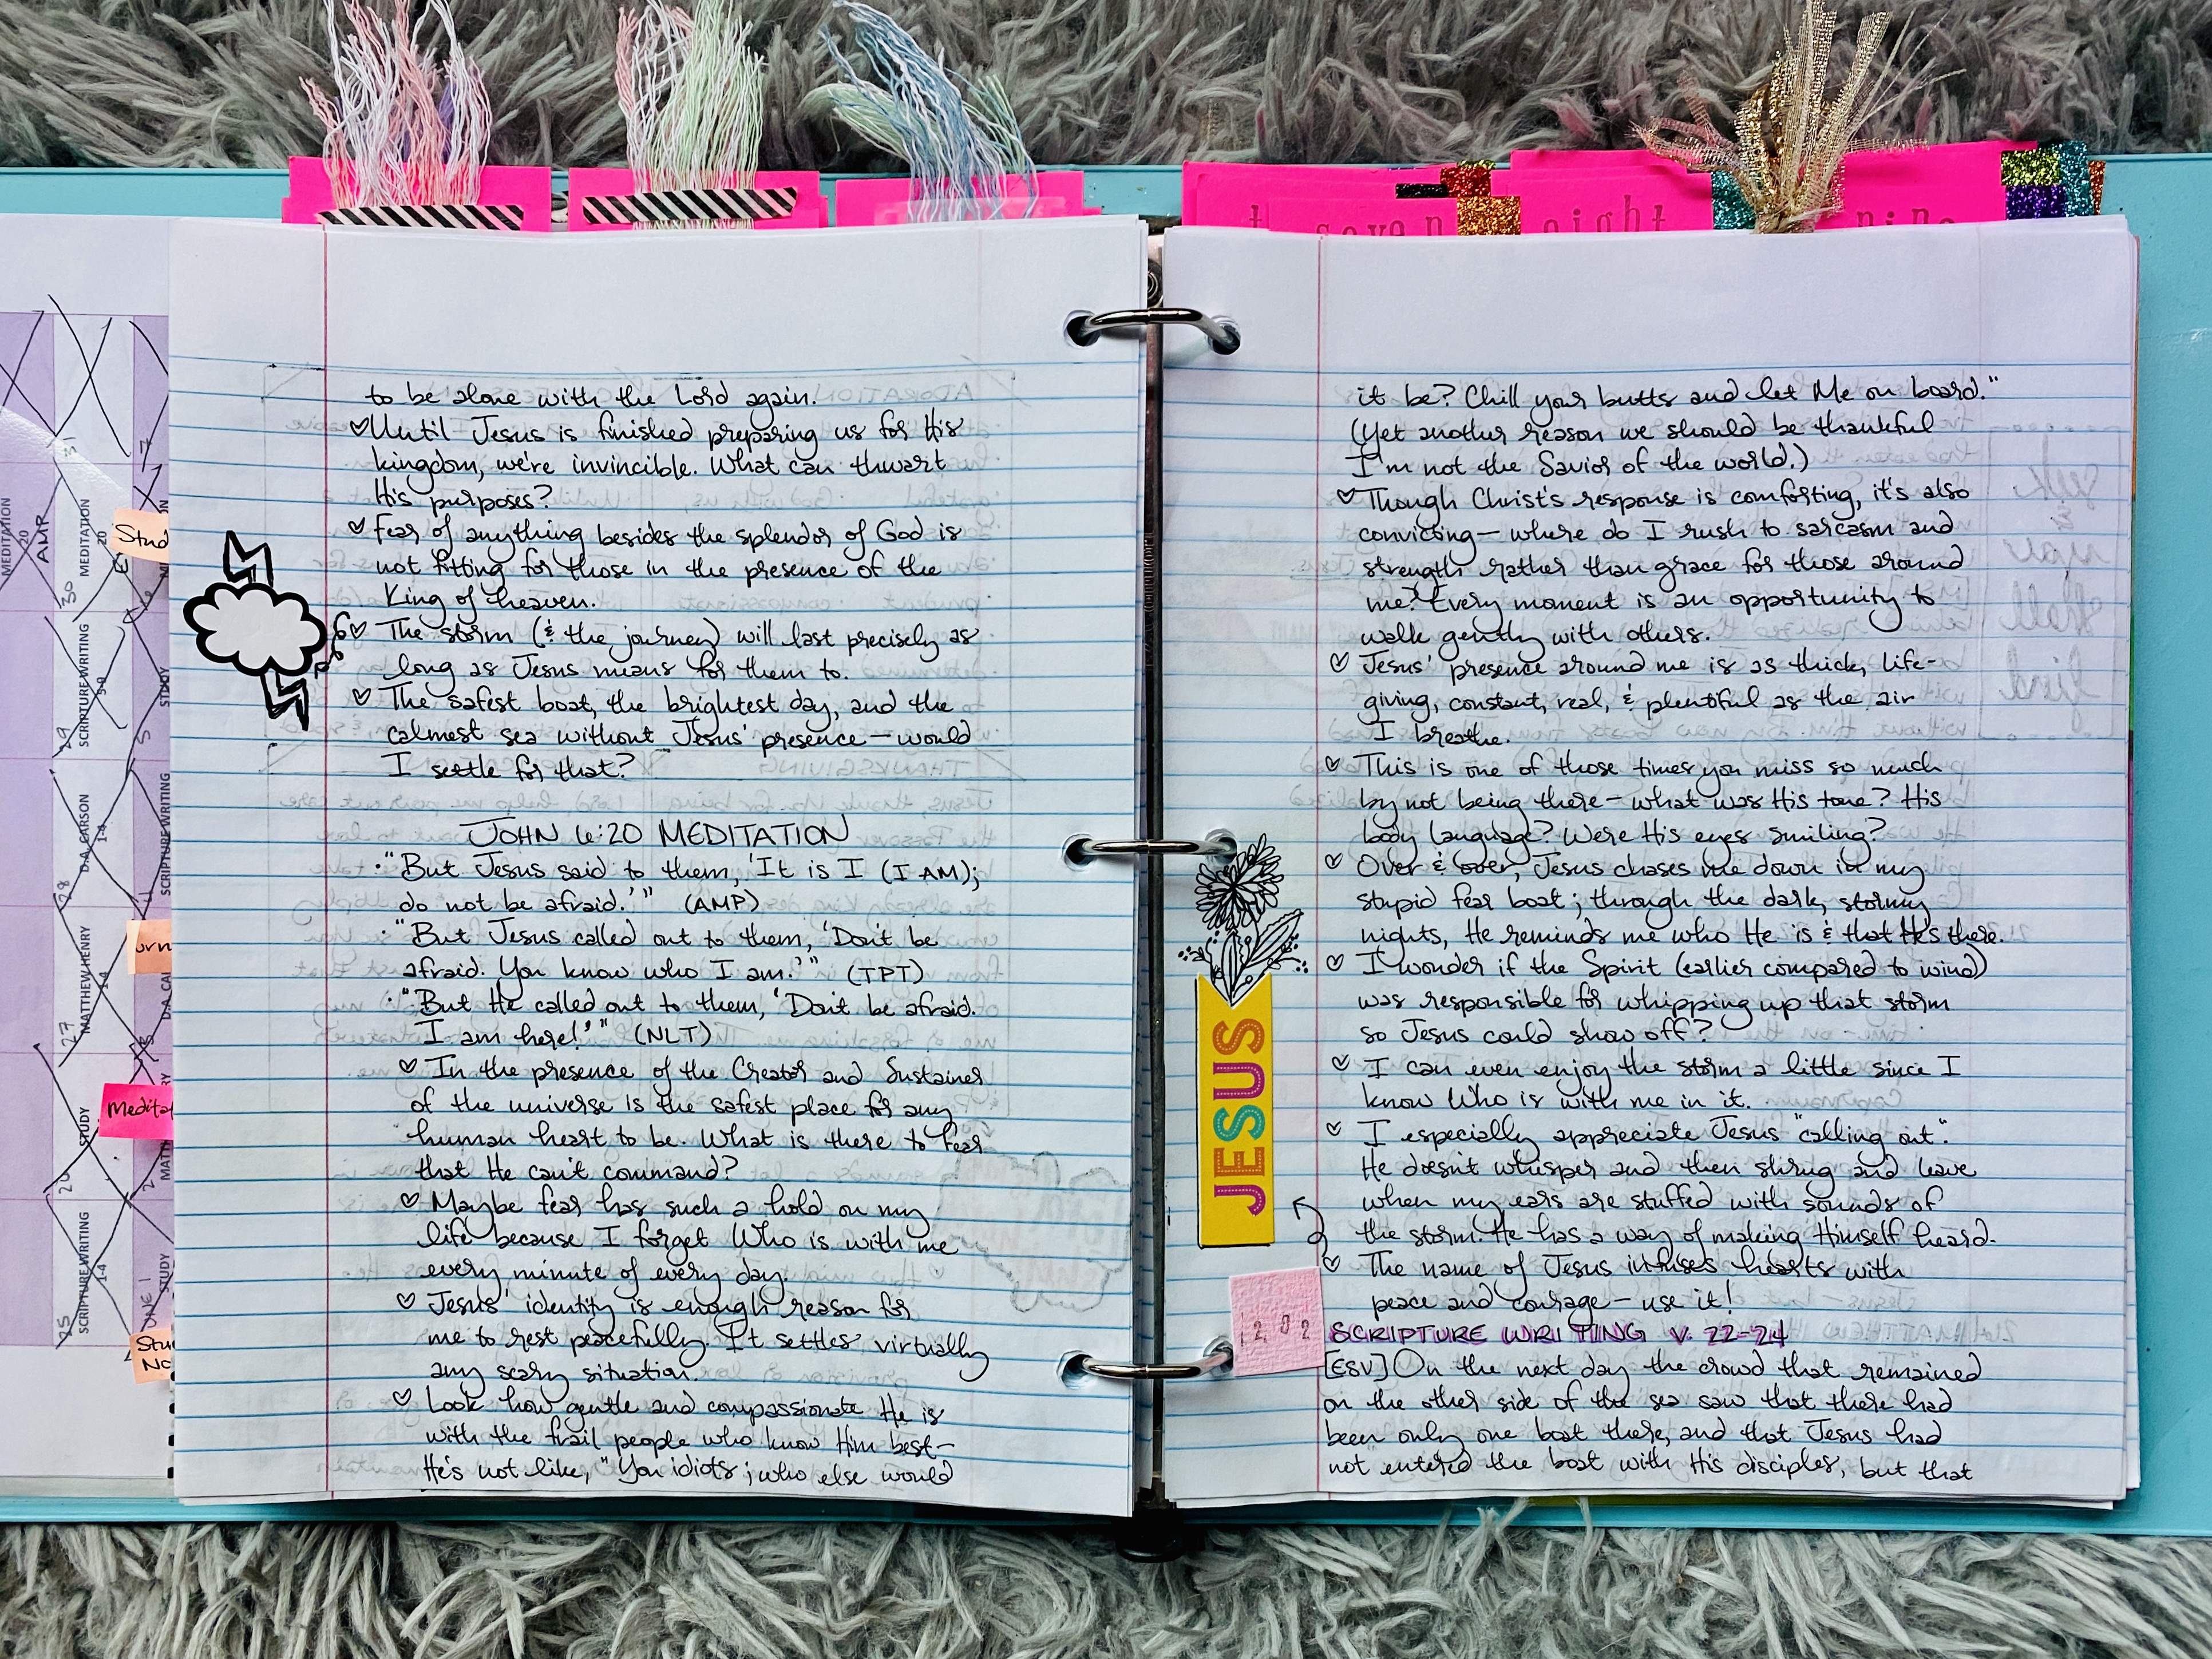 seven
eight
nine
MEDITATION
20
AMP
31
MEDITATION
20
30
SCRIPTURE WRITING
5-9
29
D.A. CARSON
1-4
28
MATTHEW HENRY
1-4
27
STUDY
26
SCRIPTURE WRITING
1-4
25
7
6
STUDY
5
SCRIPTURE WRITING
D.A. CA
2
STUDY
JUNE 1
Stud
Meditat
Stu
No
to be alone with the Lord again.
♡Until Jesus is finished preparing us for His
kingdom, we're invincible. What can thwart
His purposes?
♡ Fear of anything besides the splendor of God is
not fitting for those in the presence of the
King of heaven.
♡ The storm (& the journey) will last precisely as
long as Jesus means for them to.
♡ The safest boat, the brightest day, and the
calmest sea without Jesus' presence — would
I settle for that?
JOHN 6:20 MEDITATION
• "But Jesus said to them, 'It is I (I AM);
do not be afraid.'" (AMP)
• "But Jesus called out to them, 'Don't be
afraid. You know who I am.'" (TPT)
• "But He called out to them, 'Don't be afraid.
I am here!'" (NLT)
♡ In the presence of the Creator and Sustainer
of the universe is the safest place for any
human heart to be. What is there to fear
that He can't command?
♡ Maybe fear has such a hold on my
life because I forget Who is with me
every minute of every day.
♡ Jesus' identity is enough reason for
me to rest peacefully. It settles virtually
any scary situation.
♡ Look how gentle and compassionate He is
with the frail people who know Him best —
He's not like, "You idiots; who else would
it be? Chill your butts and let Me on board."
(Yet another reason we should be thankful
I'm not the Savior of the world.)
♡ Though Christ's response is comforting, it's also
convicting — where do I rush to sarcasm and
strength rather than grace for those around
me? Every moment is an opportunity to
walk gently with others.
♡ Jesus' presence around me is as thick, life-
giving, constant, real, & plentiful as the air
I breathe.
♡ This is one of those times you miss so much
by not being there — what was His tone? His
body language? Were His eyes smiling?
♡ Over & over, Jesus chases me down in my
stupid fear boat; through the dark, stormy
nights, He reminds me who He is & that He's there.
♡ I wonder if the Spirit (earlier compared to wind)
was responsible for whipping up that storm
so Jesus could show off?
♡ I can even enjoy the storm a little since I
know Who is with me in it.
♡ I especially appreciate Jesus "calling out".
He doesn't whisper and then shrug and leave
when my ears are stuffed with sounds of
the storm. He has a way of making Himself heard.
♡ The name of Jesus infuses hearts with
peace and courage — use it!
JESUS
SCRIPTURE WRITING V. 22-24
[ESV] On the next day the crowd that remained
on the other side of the sea saw that there had
been only one boat there, and that Jesus had
not entered the boat with His disciples, but that